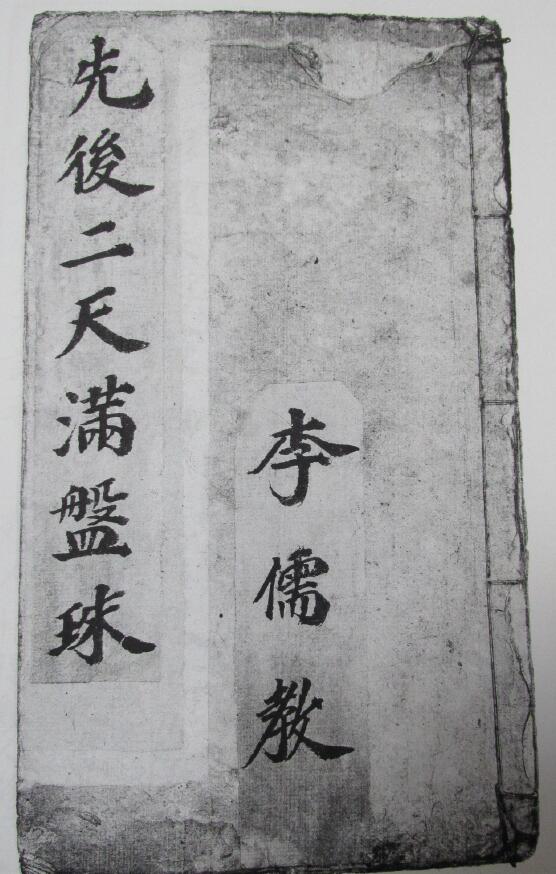 李儒教
先後二天滿盤珠